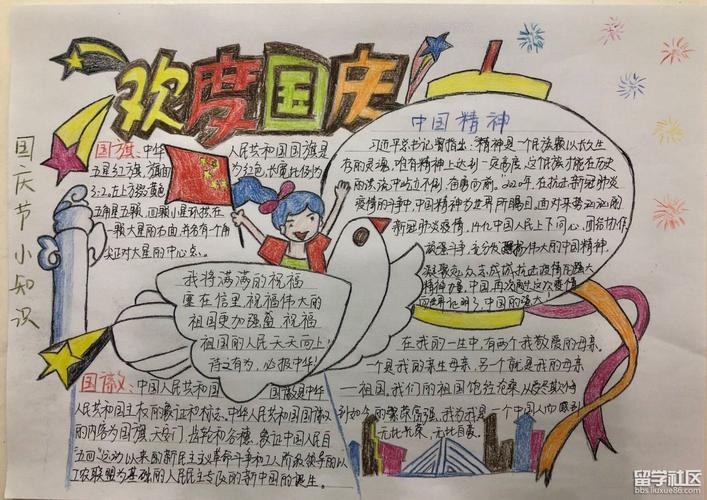 欢度国庆
国庆节小知识
国旗:中华人民共和国国旗是
五星红旗,旗面为红色,长宽比例为
3:2。左上方缀黄色
五角星五颗,四颗小星环拱在
一颗大星的右面,并各有一个角
尖正对大星的中心点。
中国精神
习近平总书记曾指出:精神是一个民族赖以长久生
存的灵魂,唯有精神上达到一定高度,这个民族才能在历史
的洪流中屹立不倒、奋勇向前。2020年,在抗击新冠肺炎
疫情的斗争中,中国精神为世界所瞩目。面对来势汹汹的
新冠肺炎疫情,中国人民上下同心、团结协作、
顽强斗争,充分发扬伟大的中国精神。
凝聚起众志成城抗击疫情的强大
精神力量,中国,再次
向世界证明了,中国的强大!
我将满满的祝福
塞在信里,祝福伟大的
祖国更加强盛,祝福
祖国的人民天天向上!
诗文有为,必报中华!
国徽:中国人民共和国国徽是中华
人民共和国主权的象征和标志。中华人民共和国国徽
的内容为国旗、天安门、齿轮和谷穗,象征中国人民自
五四运动以来的新民主主义革命斗争和工人阶级领导的以
工农联盟为基础的人民民主专政的新中国的诞生。
在我的一生中,有两个我敬爱的母亲。
一个是我的亲生母亲,另一个就是我的母亲
——祖国。我们的祖国饱经沧桑,从
到如今的繁荣富强,我为我是一个中国人而感到
无比光荣、无比自豪。
留学社区
bbs.liuxue86.com